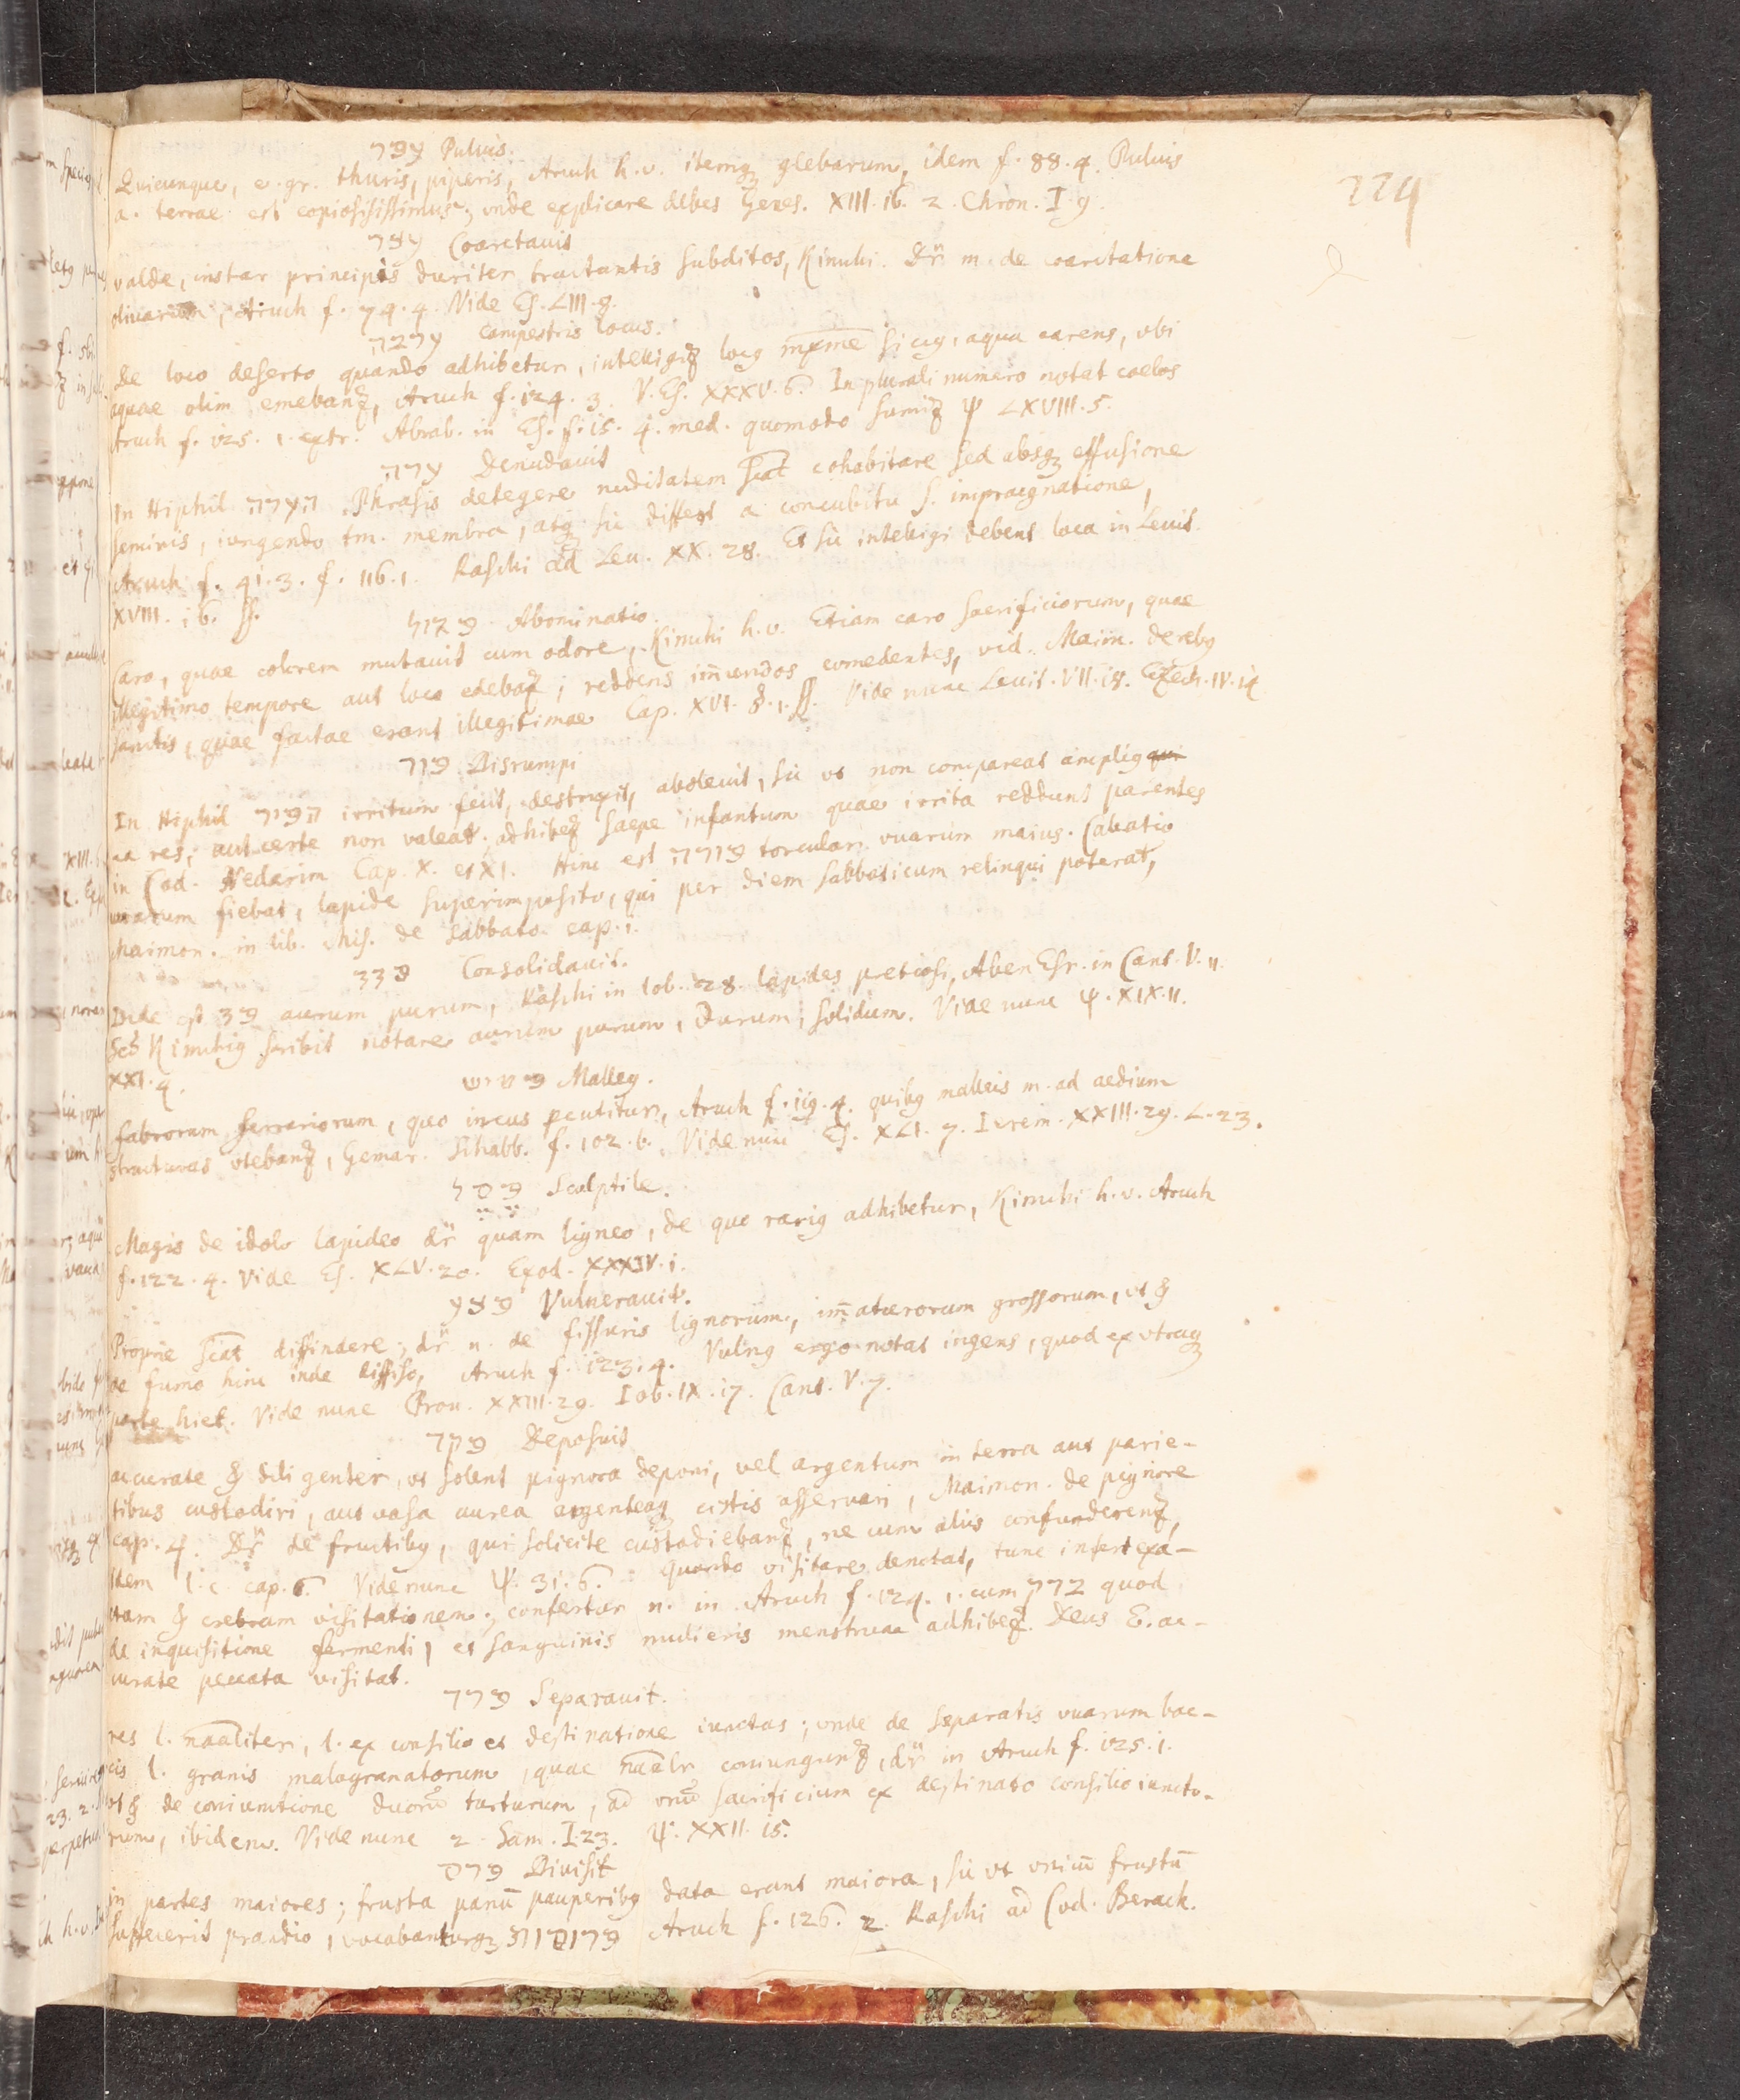 עפר Puluis.
Quicunque, e. gr. thuris, piperis, Aruch h. v. itemqꝫ glebarum, idem f. 88. 4. Puluis
a. terrae est copiosissimus; vnde explicare debes Genes. XIII. 16. 2. Chron. I. 9.
224
עצר Coarctauit
valde, instar principis duriter tractantis subditos, Kimchi. Dr̃ m. de coarctatione
oliuarum, Aruch f. 74. 4. Vide Es. LIII. 8.
ערבה campestris locus.
De loco deserto quando adhibetur, intelligitꝫ locꝯ mxme siccꝯ, aqua carens, vbi
aquae olim emebantꝫ, Aruch f. 124. 3. V. Es. XXXV. 6. In plurali numero notat coelos
Aruch f. 125. 1. extr. Abrab. in Es. f. 15. 4. med. quomodo sumitꝫ ψ LXVIII. 5.
ערה Denudauit
In Hiphil הערה. Phrasis detegere nuditatem scat cohabitare sed absqꝫ effusione
seminis, iungendo tm. membra, atqꝫ sic differt a concubitu s. impraegnatione,
Aruch f. 41. 3. f. 116. 1. Raschi ad Leu. XX. 28. Et sic intelligi debent loca in Leuit.
XVIII. 16. ss.
פגול Abominatio.
Caro, quae colorem mutauit cum odore, Kimchi h. v. Etiam caro sacrificiorum, quae
illegitimo tempore aut loco edebatꝫ; reddens im̄undos comedentes, vid. Maim. de rebꝯ
sanctis, quae factae erant illegitimae Cap. XVI. §. 1. ss. Vide nunc Leuit. VII. 18. Ezech. IV. 14
פור Disrumpi
In Hiphil הפיר irritum fecit, destruxit, aboleuit, sic vt non compareat ampliꝯ
ea res; aut certe non valeat. adhibetꝫ saepe infantum quae irrita reddunt parentes
in Cod. Nedarim Cap. X. et XI. Hinc est פורה torcular vuarum maius. Calcatio
vuarum fiebat, lapide superimposito, qui per diem sabbaticum relinqui poterat,
Maimon. in lib. Mis. de Sabbato cap. 1.
פזז Consolidauit.
Inde est פז aurum purum, Raschi in Iob. 28. lapides pretiosi, Aben Esr. in Cant. V. 11.
Sed Kimchiꝯ scribit notare aurum purum, durum, solidum. Vide nunc ψ. XIX. 11.
XXI. 4.
פטיש Malleꝯ.
fabrorum ferrariorum, quo incus percutitur, Aruch f. 119. 4. quibꝯ malleis m. ad aedium
structuras vtebantꝫ, Gemar. Schabb. f. 102. b. Vide nunc Es. XLI. 7. Ierem. XXIII. 29. L. 23.
פֶּסֶל Sculptile.
Magis de idolo lapideo dr̃ quam ligneo, de quo rariꝯ adhibetur, Kimchi h. v. Aruch
f. 122. 4. Vide Es. XLV. 20. Exod. XXXIV. 1.
פצע Vulnerauit.
Proprie scat diffindere; dr̃ n. de fissuris lignorum, im̄aturorum grossorum, vt &
de fumo hinc inde diffiso, Aruch f. 123. 4. Vulnꝯ ergo notat ingens, quod ex vtraqꝫ
parte hiet. Vide nunc Prou. XXIII. 29. Iob. IX. 17. Cant. V. 7.
פקד Deposuit
accurate & diligenter, vt solent pignora deponi, vel argentum in terra aut parie-
tibus custodiri, aut vasa aurea argenteaqꝫ cistis asseruari, Maimon. de pignore
cap. 4. Dr̃ de fructibꝯ, qui solicite custodiebantꝫ, ne cum aliis confunderentꝫ,
idem l. c. cap. 6. Vide nunc ψ. 31. 6. Quando visitare denotat, tunc infert exa-
ctam & crebram visitationem; confertur n. in Aruch f. 124. 1. cum בדק quod
de inquisitione fermenti, et sanguinis mulieris menstruae adhibetꝫ. Deus E. ac-
curate peccata visitat.
פרד Separauit.
res l. naaliter, l. ex consilio et destinatione iunctas; vnde de separatis vuarum bac-
cis l. granis malogranatorum, quae naalr coniunguntꝫ, dr̃ in Aruch f. 125. 1.
vt & de coniunctione duorũ turturum, ad vnũ sacrificium ex destinato consilio iuncto-
rum, ibidem. Vide nunc 2. Sam. I. 23. ψ. XXII. 15.
פרס Diuisit
in partes maiores; frusta panũ pauperibꝯ data erant maiora, sic vt vnicũ frustũ
suffecerit prandio, vocabanturqꝫ פרוסות Aruch f. 126. 2. Raschi ad Cod. Berach.